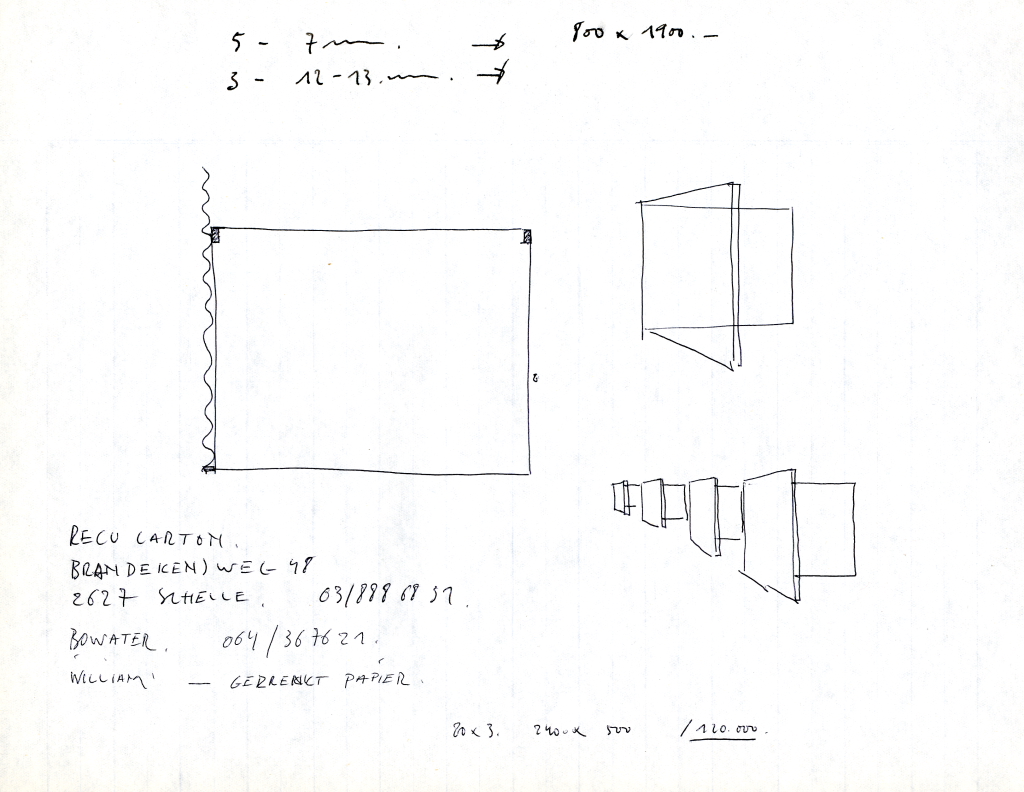 5 - 7 mm. → 800 x 1900.-
3 - 12-13. mm. →
RECU CARTON.
BRANDEKENSWEG 48
2627 SCHELLE. 03/888 68 51.
BOWATER. 064/367621.
WILLIAM — GEKREUKT PAPIER.
80 x 3. 2400 x 500 /120.000.